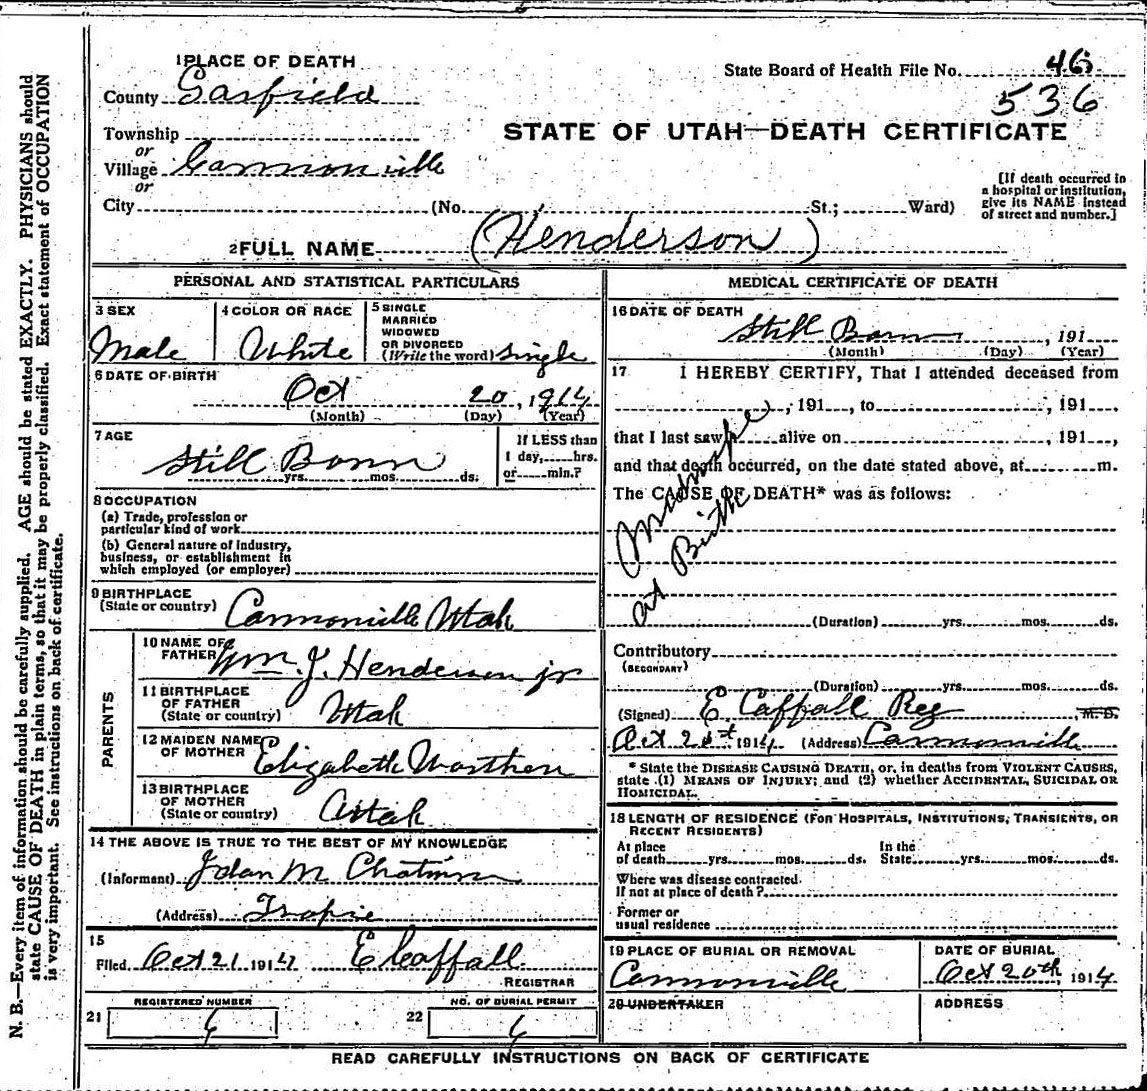 N. B.—Every item of information should be carefully supplied. AGE should be stated EXACTLY. PHYSICIANS should
state CAUSE OF DEATH in plain terms, so that it may be properly classified. Exact statement of OCCUPATION
is very important. See instructions on back of certificate.
1 PLACE OF DEATH
State Board of Health File No. 46
County Garfield
536
Township
STATE OF UTAH—DEATH CERTIFICATE
or
Village Cannonville
or
[If death occurred in
a hospital or institution,
give its NAME instead
of street and number.]
City (No. St.; Ward)
2 FULL NAME (Henderson)
PERSONAL AND STATISTICAL PARTICULARS
3 SEX
Male
4 COLOR OR RACE
White
5 SINGLE
MARRIED
WIDOWED
OR DIVORCED
(Write the word) Single
6 DATE OF BIRTH
Oct 20, 1914
(Month) (Day) (Year)
7 AGE
Still Born
yrs. mos. ds.
If LESS than
1 day, hrs.
or min.?
8 OCCUPATION
(a) Trade, profession or
particular kind of work
(b) General nature of industry,
business, or establishment in
which employed (or employer)
9 BIRTHPLACE
(State or country) Cannonville Utah
PARENTS
10 NAME OF
FATHER Wm. J. Henderson jr
11 BIRTHPLACE
OF FATHER
(State or country) Utah
12 MAIDEN NAME
OF MOTHER Elizabeth Worthen
13 BIRTHPLACE
OF MOTHER
(State or country) Utah
14 THE ABOVE IS TRUE TO THE BEST OF MY KNOWLEDGE
(Informant) M
(Address) Tropic
15
Filed Oct 21 1914 E Caffall
REGISTRAR
REGISTERED NUMBER
21 6
NO. OF BURIAL PERMIT
22 6
MEDICAL CERTIFICATE OF DEATH
16 DATE OF DEATH
Still Born, 191
(Month) (Day) (Year)
17 I HEREBY CERTIFY, That I attended deceased from
, 191 , to , 191 ,
that I last saw h alive on , 191 ,
and that death occurred, on the date stated above, at m.
The CAUSE OF DEATH* was as follows:
Midwife
at Birth
(Duration) yrs. mos. ds.
Contributory
(SECONDARY)
(Duration) yrs. mos. ds.
(Signed) E Caffall Reg M. D.
Oct 1914 (Address) Cannonville
* State the DISEASE CAUSING DEATH, or, in deaths from VIOLENT CAUSES,
state (1) MEANS OF INJURY; and (2) whether ACCIDENTAL, SUICIDAL OR
HOMICIDAL.
18 LENGTH OF RESIDENCE (FOR HOSPITALS, INSTITUTIONS, TRANSIENTS, OR
RECENT RESIDENTS)
At place
of death yrs. mos. ds.
In the
State yrs. mos. ds.
Where was disease contracted
If not at place of death?
Former or
usual residence
19 PLACE OF BURIAL OR REMOVAL
Cannonville
DATE OF BURIAL
Oct 20th, 1914
20 UNDERTAKER
ADDRESS
READ CAREFULLY INSTRUCTIONS ON BACK OF CERTIFICATE